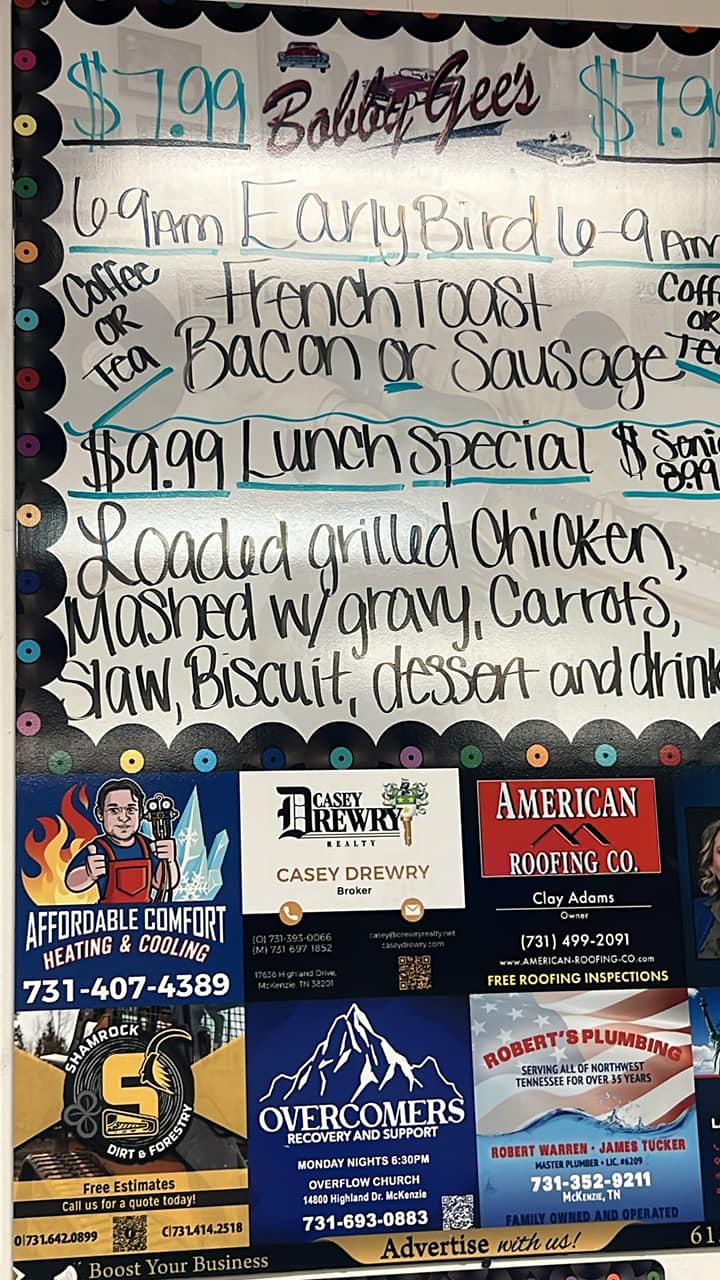 $7.99 Bobby Gee's $7.9
6-9AM Early Bird 6-9AM
Coffee OR Tea
French Toast
Bacon or Sausage
Coff
OR
Tea
$9.99 Lunch Special $ Seni
8.99
Loaded grilled Chicken,
Mashed w/ gravy, Carrots,
Slaw, Biscuit, dessert and drink
AFFORDABLE COMFORT
HEATING & COOLING
731-407-4389
CASEY
DREWRY
REALTY
CASEY DREWRY
Broker
(O) 731-393-0066
(M) 731-697-1852
casey@drewryrealty.net
caseydrewry.com
17636 Highland Drive,
McKenzie, TN 38201
AMERICAN
ROOFING CO.
Clay Adams
Owner
(731) 499-2091
www.AMERICAN-ROOFING-CO.com
FREE ROOFING INSPECTIONS
SHAMROCK
S
DIRT & FORESTRY
Free Estimates
Call us for a quote today!
O|731.642.0899 C|731.414.2518
OVERCOMERS
RECOVERY AND SUPPORT
MONDAY NIGHTS 6:30PM
OVERFLOW CHURCH
14800 Highland Dr. McKenzie
731-693-0883
ROBERT'S PLUMBING
SERVING ALL OF NORTHWEST
TENNESSEE FOR OVER 35 YEARS
ROBERT WARREN • JAMES TUCKER
MASTER PLUMBER • LIC. #6209
731-352-9211
MCKENZIE, TN
FAMILY OWNED AND OPERATED
Boost Your Business
Advertise with us!
61